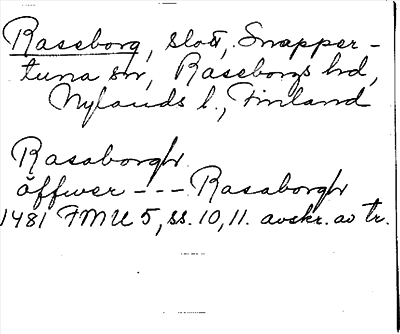 Raseborg, slott, Snapper-
tuna sn, Raseborgs hd,
Nylands l., Finland
Rasaborgh
öffwer --- Rasaborgh
1481 FMU 5, ss. 10, 11. avskr. av tr.